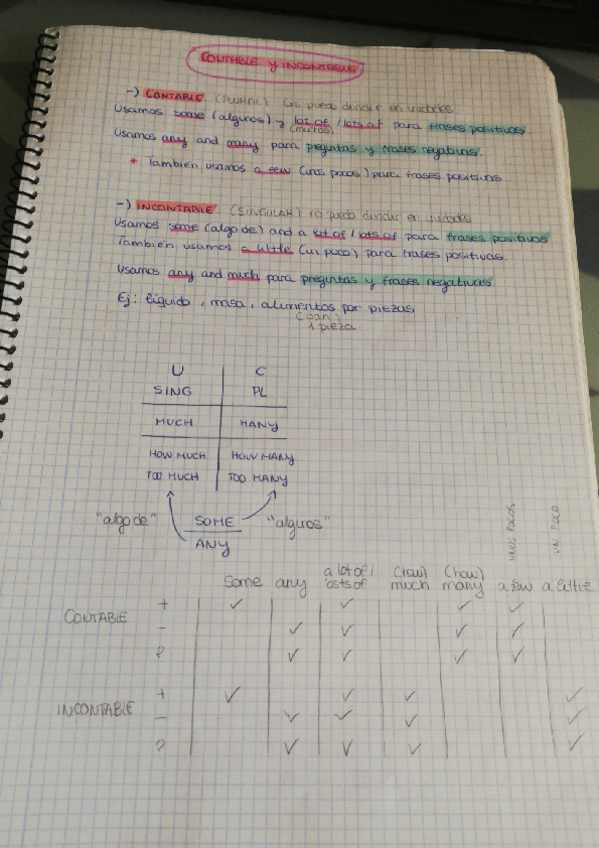 CONTABLE Y INCONTABLE
-) CONTABLE. (PLURAL) Lis puedo dividir en unidades
Usamos some (algunos) y lot of / lots of para frases positivas.
(muchos)
Usamos any and many para preguntas y frases negativas.
* También usamos a few (unos pocos) para frases positivas
-) INCONTABLE (SINGULAR) no puedo dividir en unidades
Usamos some (algo de) and a lot of / lots of para frases positivas
También usamos a little (un poco) para frases positivas.
Usamos any and much para preguntas y frases negativas
Ej: líquido, masa, alimentos por piezas
(pan)
1 pieza
U C
SING PL
MUCH MANY
HOW MUCH HOW MANY
TOO MUCH TOO MANY
"algo de" SOME "algunos"
ANY
UNOS POCOS UN POCO
some any a lot of / lots of (how) much (how) many a few a little
CONTABLE
+ ✓ ✓ ✓ ✓
- ✓ ✓ ✓ ✓
? ✓ ✓ ✓ ✓
INCONTABLE
+ ✓ ✓ ✓ ✓
- ✓ ✓ ✓ ✓
? ✓ ✓ ✓ ✓